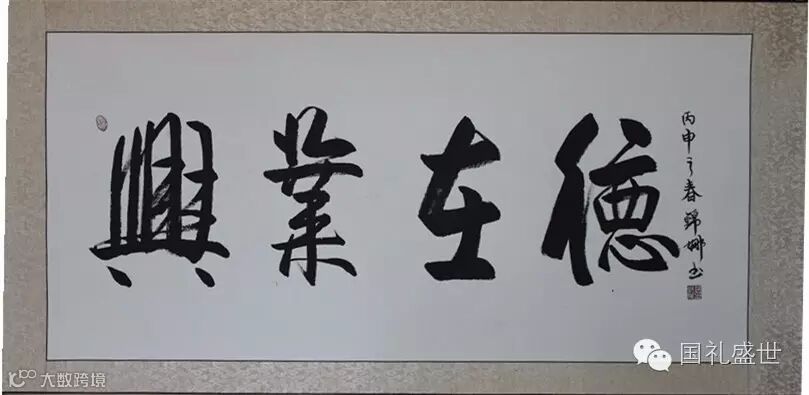 德在業興
丙申之春錦娜书
国礼盛世
大数跨境